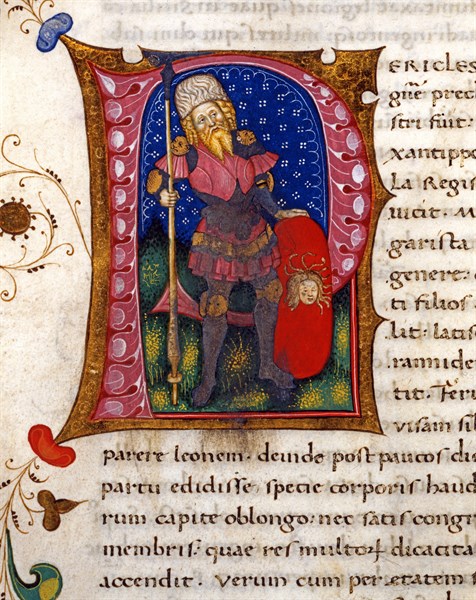 PERICLES
gñe prec
stri fuit:
xantipp
la Regis
uicit. M
garista
genere:
ti filios
lit. latis
ramide
tit.
visam sil
parere leonem. deinde post paucos di
partu edidisse specie corporis haud
rum capite oblongo: nec satis congr
membris: quae res multoꝝ dicacita
accendit. Verum cum per etatem